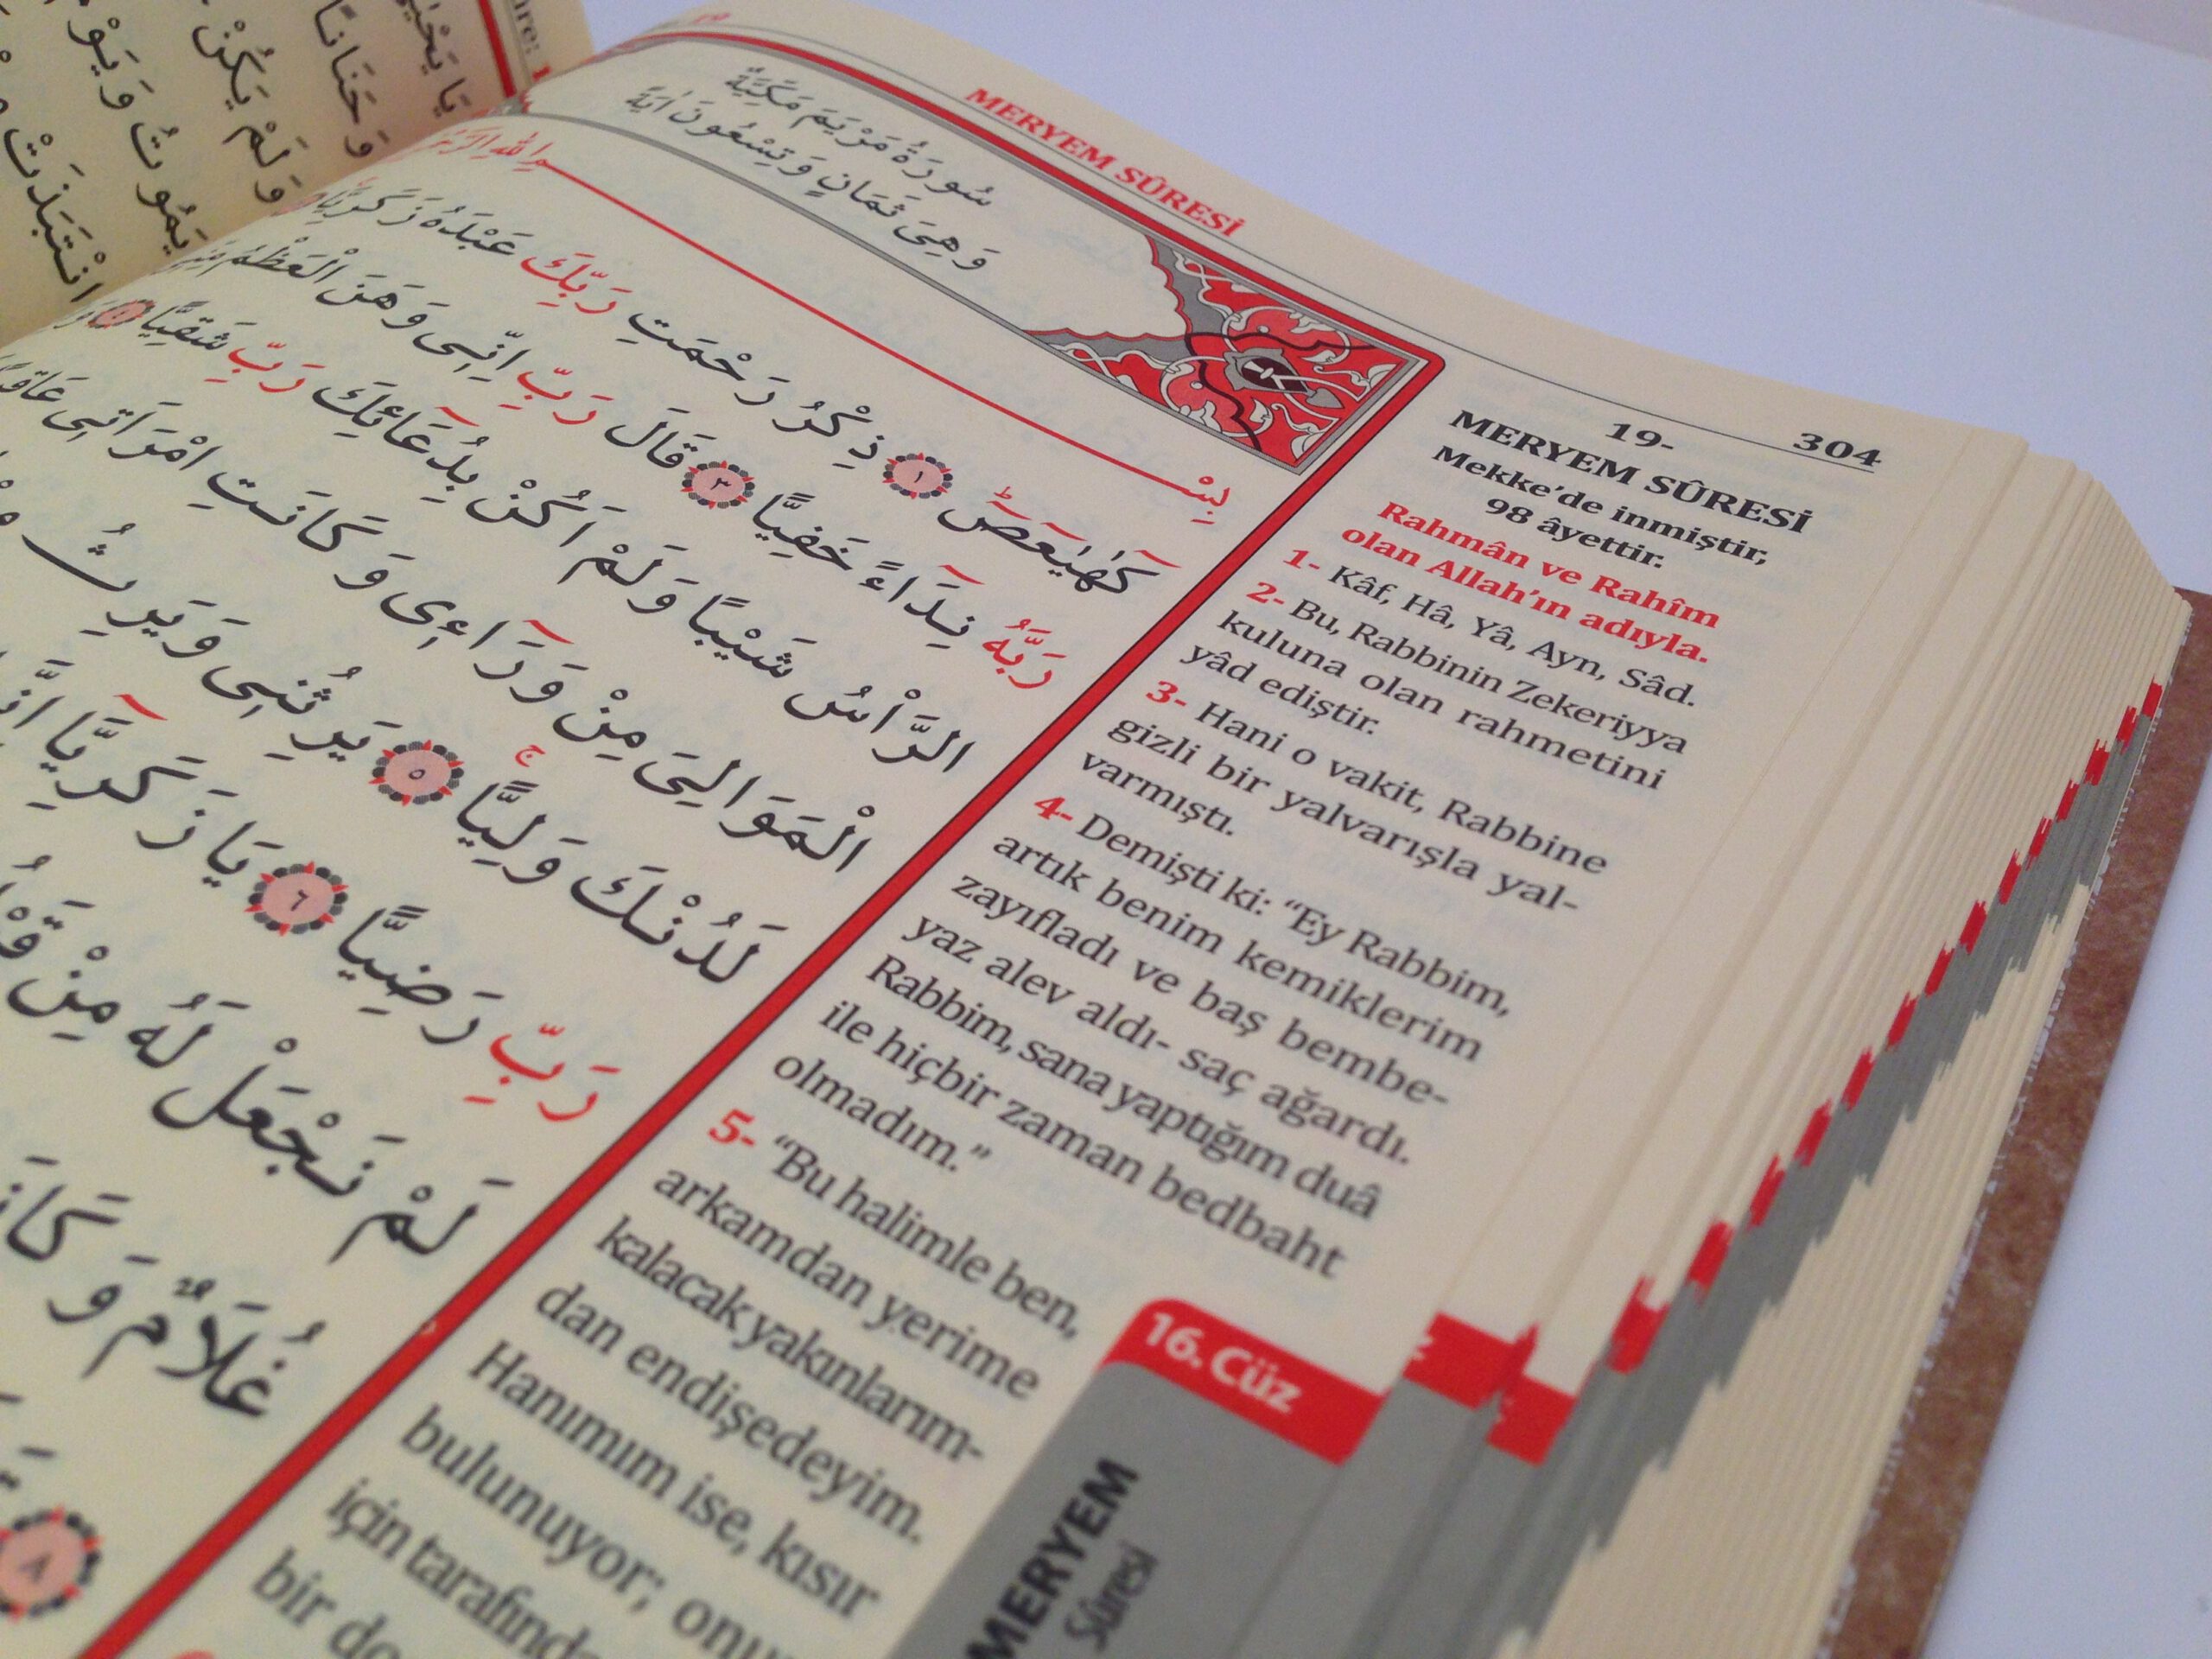 MERYEM SÛRESİ
304
سُورَةُ مَرْيَمَ مَكِّيَّةٌ
وَهِىَ ثَمَانٍ وَتِسْعُونَ اٰيَةً
بِسْمِ اللهِ
كٓهٰيٰعٓصٓ ١ ذِكْرُ رَحْمَتِ رَبِّكَ عَبْدَهُ زَكَرِيَّا
رَبَّهُ نِدَٓاءً خَفِيًّا ٣ قَالَ رَبِّ اِنّٖى وَهَنَ الْعَظْمُ
الرَّاْسُ شَيْبًا وَلَمْ اَكُنْ بِدُعَٓائِكَ رَبِّ شَقِيًّا
الْمَوَالِىَ مِنْ وَرَٓاءٖى وَكَانَتِ امْرَاَتٖى
لَدُنْكَ وَلِيًّا ٥ يَرِثُنٖى وَيَرِثُ
رَبِّ رَضِيًّا ٦ يَا زَكَرِيَّٓا
لَمْ نَجْعَلْ لَهُ مِنْ
غُلَامٌ وَ
٨
19-
MERYEM SÛRESİ
Mekke'de inmiştir,
98 âyettir.
Rahmân ve Rahîm
olan Allah'ın adıyla.
1- Kâf, Hâ, Yâ, Ayn, Sâd.
2- Bu, Rabbinin Zekeriyya
kuluna olan rahmetini
yâd ediştir.
3- Hani o vakit, Rabbine
gizli bir yalvarışla yal-
varmıştı.
4- Demişti ki: “Ey Rabbim,
artık benim kemiklerim
zayıfladı ve baş bembe-
yaz alev aldı- saç ağardı.
Rabbim, sana yaptığım duâ
ile hiçbir zaman bedbaht
olmadım.”
5- “Bu halimle ben,
arkamdan yerime
kalacak yakınlarım-
dan endişedeyim.
Hanımım ise, kısır
bulunuyor;
için
bir
16. Cüz
MERYEM
Sûresi
يَا
وَحَنَانًا
وَلَمْ يَكُنْ
يَمُوتُ وَيَوْ
انْتَبَذَتْ